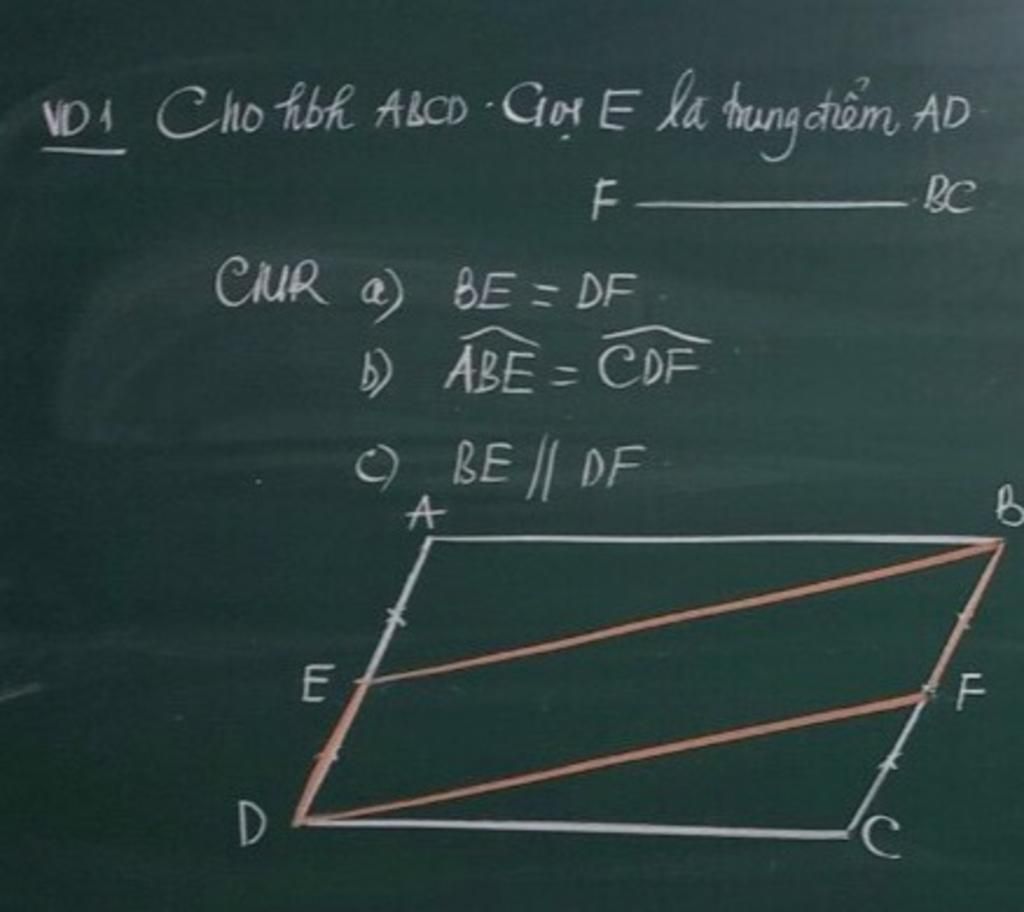 VD1 Cho hbh ABCD. Gọi E là trung điểm AD
F ——— BC
CMR a) BE = DF
b) \widehat{ABE} = \widehat{CDF}
c) BE // DF
A B
E F
D C